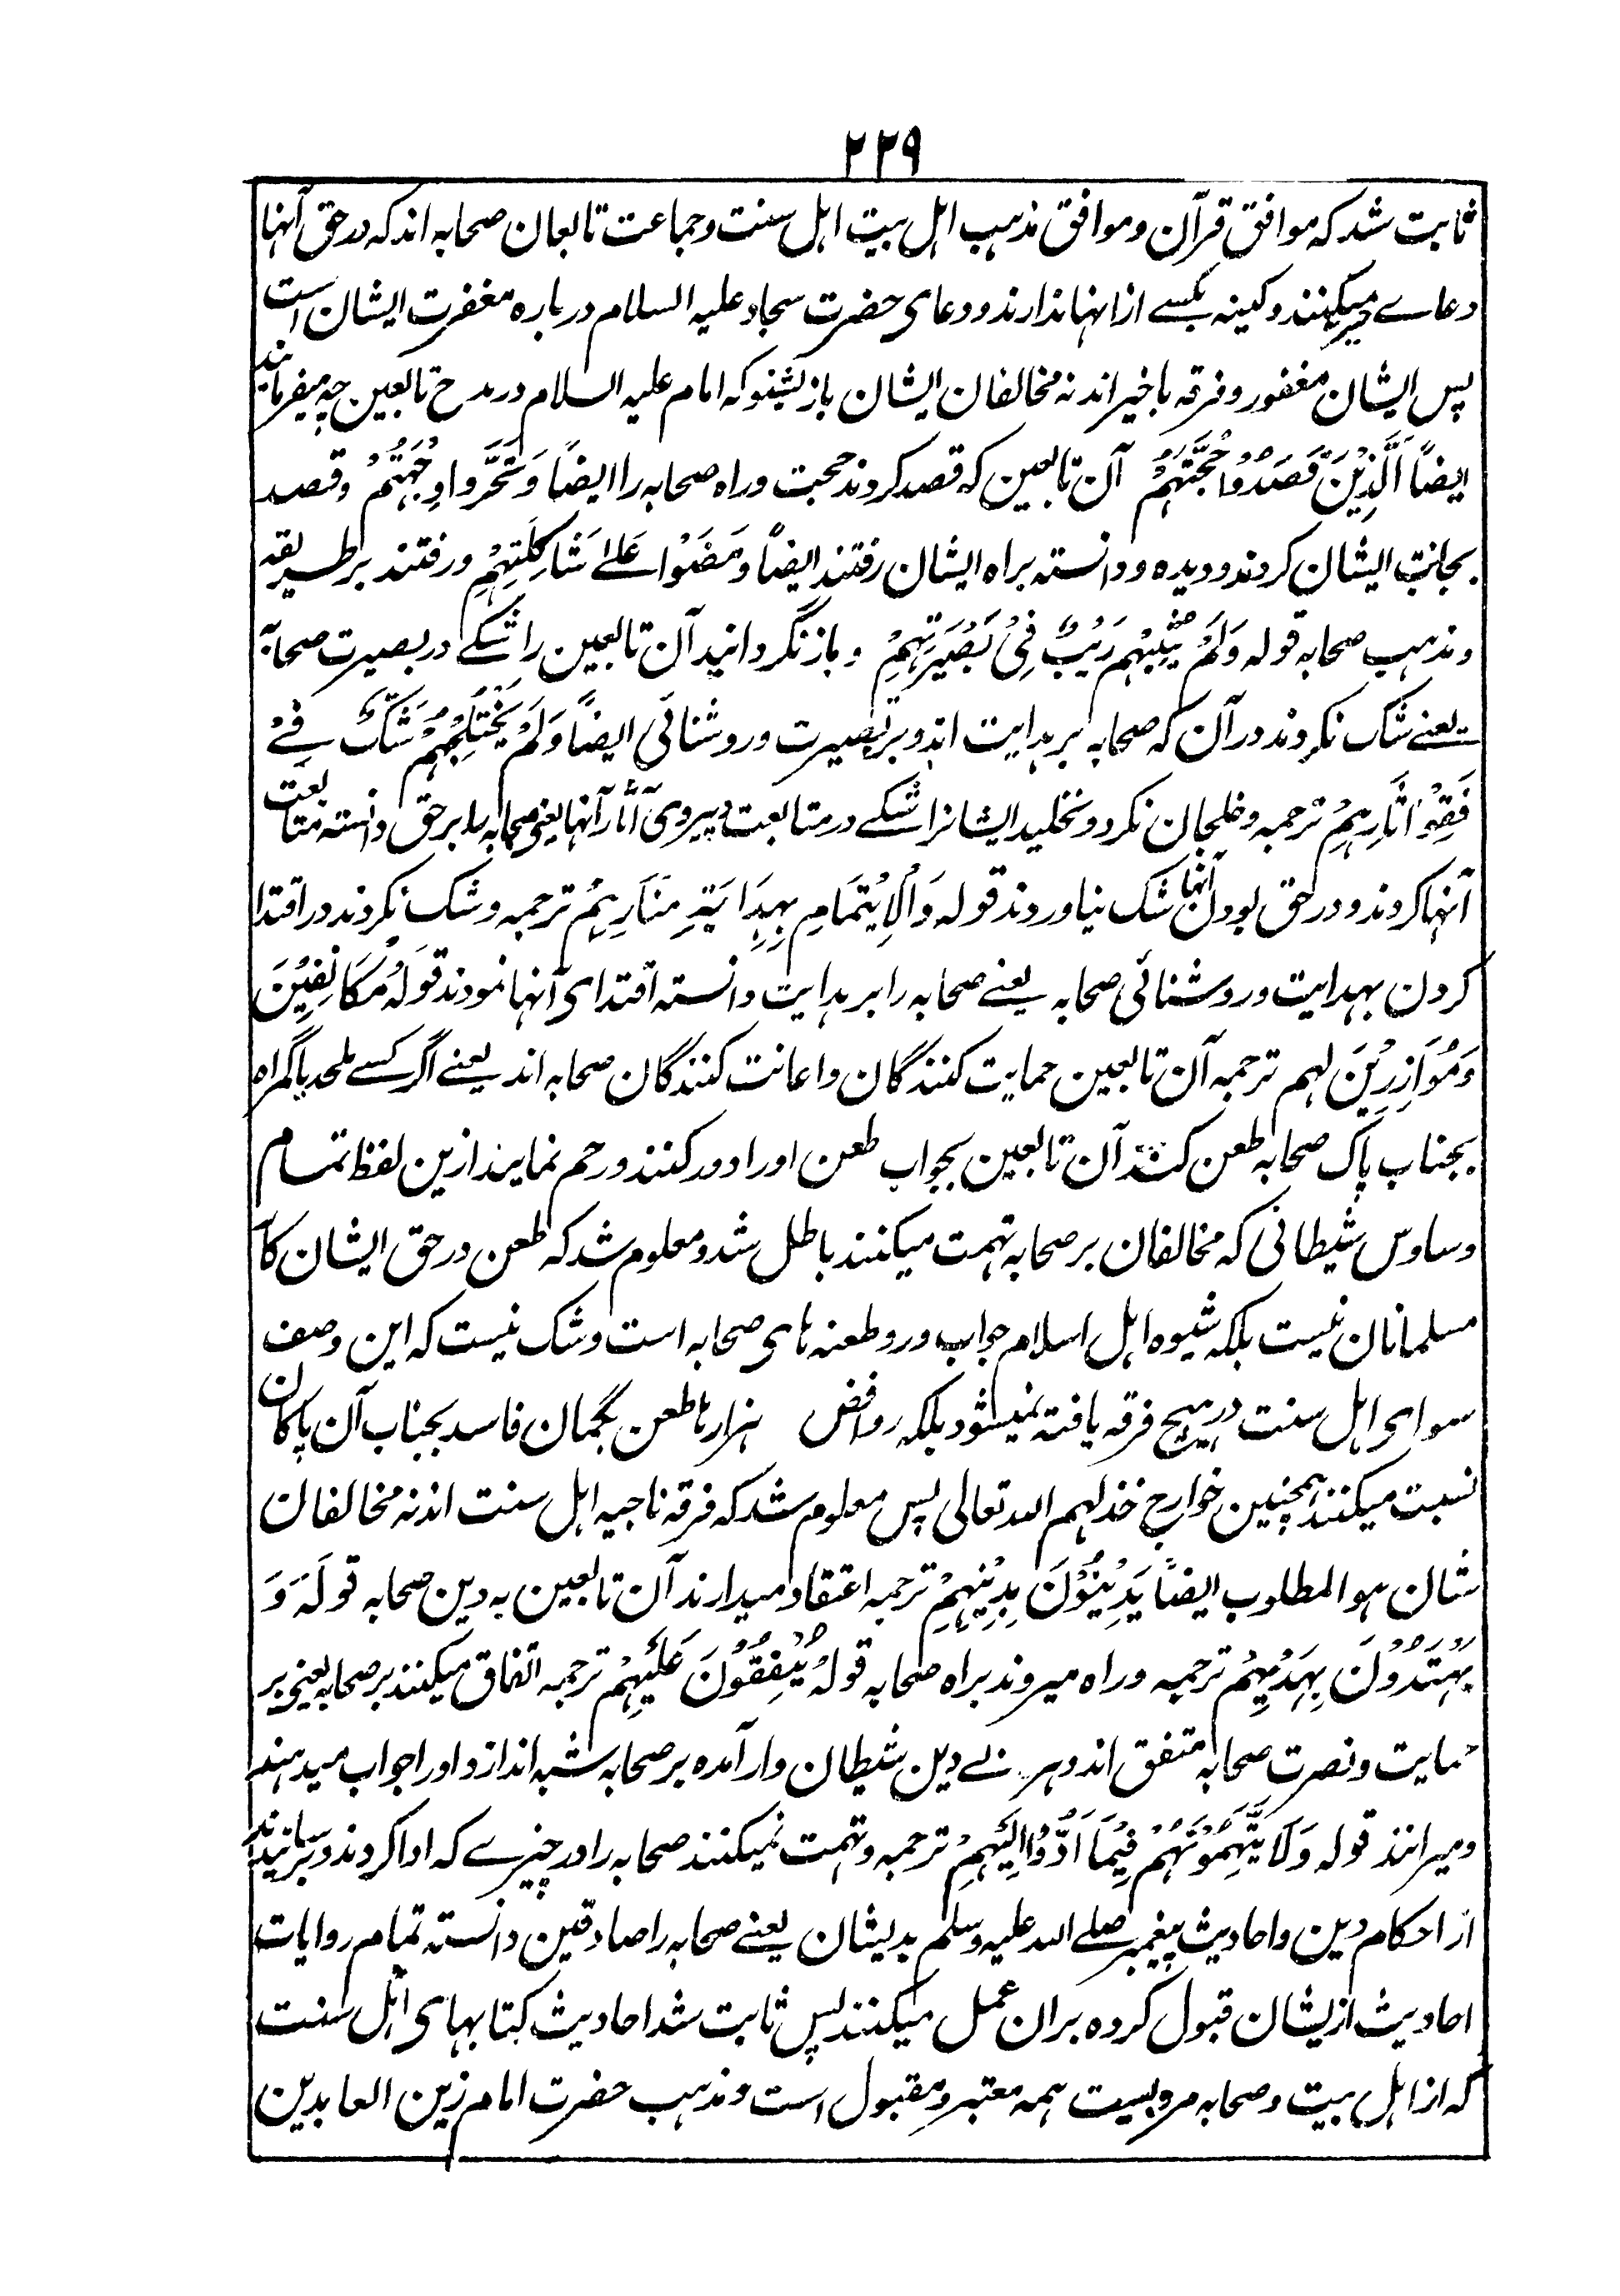 ۲۲۹
ثابت شد که موافق قرآن و موافق مذہب اہل بیت اہل سنت و جماعت تابعان صحابہ اند کہ در حق آنہا
دعاے خیر میکنند و کینہ بکسے از انہا ندارند و دعای حضرت سجاد علیہ السلام در بارہ مغفرت ایشان است
پس ایشان مغفور و فرقہ باخیر اند نہ مخالفان ایشان باز بشنو کہ امام علیہ السلام در مدح تابعین چہ میفرمایند
ایضاً اَلَّذِیْنَ قَصَدُوْا حُجَّتَهُمْ آن تابعین کہ قصد کردند حجت و راہ صحابہ را ایضاً وَتَحَّرَوا وِجْهَتَهُمْ و قصد
بجانب ایشان کردند و دیدہ و دانستہ براہ ایشان رفتند ایضاً وَمَضَوْا عَلیٰ شَاکِلَتِهِمْ و رفتند بر طریقہ
و مذہب صحابہ قولہ وَلَمْ یُثْنِهِمْ رَیْبٌ فِیْ بَصِیْرَتِهِمْ و باز نگردانید آن تابعین را شکے در بصیرت صحابہ
یعنے شک نکردند در آن کہ صحابہ بر ہدایت اند و بر بصیرت و روشنائی ایضاً وَلَمْ یَخْتَلِجْهُمْ شَکٌّ فِےْ
قَفْوِ اٰثَارِهِمْ ترجمہ و خلجان نکرد و نخلید ایشانرا شکے در متابعت و پیروی آثار آنہا یعنی صحابہ را بر حق دانستہ متابعت
آنہا کردند و در حق بودن آنہا شک نیاوردند قولہ وَالْاِیْتِمَامِ بِهِدَایَۃِ مَنَارِهِمْ ترجمہ و شک نکردند در اقتدا
کردن بہدایت و روشنائی صحابہ یعنے صحابہ را بر ہدایت دانستہ اقتدای آنہا نمودند قولہ مُکَانِفِیْنَ
وَمُوَازِرِیْنَ لهم ترجمہ آن تابعین حمایت کنندگان و اعانت کنندگان صحابہ اند یعنے اگر کسے ملحد یا گمراہ
بجناب پاک صحابہ طعن کند آن تابعین بجواب طعن او را دور کنند و رحم نمایند ازین لفظ تمام
وساوس شیطانی کہ مخالفان بر صحابہ تہمت میکنند باطل شد و معلوم شد کہ طعن در حق ایشان کار
مسلمانان نیست بلکہ شیوہ اہل اسلام جواب و رد طعنہ ہای صحابہ است و شک نیست کہ این وصف
سوای اہل سنت در ہیچ فرقہ یافتہ نمیشود بلکہ روافض ہزارہا طعن بگمان فاسد بجناب آن پاکان
نسبت میکنند ہمچنین خوارج خذلهم اللہ تعالی پس معلوم شد کہ فرقہ ناجیہ اہل سنت اند نہ مخالفان
شان ہو المطلوب ایضاً یَدِیْنُوْنَ بِدِیْنِهِمْ ترجمہ اعتقاد میدارند آن تابعین بہ دین صحابہ قولہ وَ
یَهْتَدُوْنَ بِهَدْیِهِمْ ترجمہ و راہ میروند براہ صحابہ قولہ یَتَّفِقُوْنَ عَلَیْهِمْ ترجمہ اتفاق میکنند بر صحابہ یعنی بر
حمایت و نصرت صحابہ متفق اند و ہر بے دین شیطان وار آمدہ بر صحابہ شبہ اندازد او را جواب میدہند
و میرانند قولہ وَلَا یَتَّهِمُوْنَهُمْ فِیْمَا اَدَّوْا اِلَیْهِمْ ترجمہ و تہمت نمیکنند صحابہ را در چیزے کہ ادا کردند و رسانیدند
از احکام دین و احادیث پیغمبر صلے اللہ علیہ وسلم بدیشان یعنے صحابہ را صادقین دانستہ تمام روایات
احادیث ازیشان قبول کردہ بران عمل میکنند پس ثابت شد احادیث کتابہای اہل سنت
کہ از اہل بیت و صحابہ مرویست ہمہ معتبر و مقبول است و مذہب حضرت امام زین العابدین